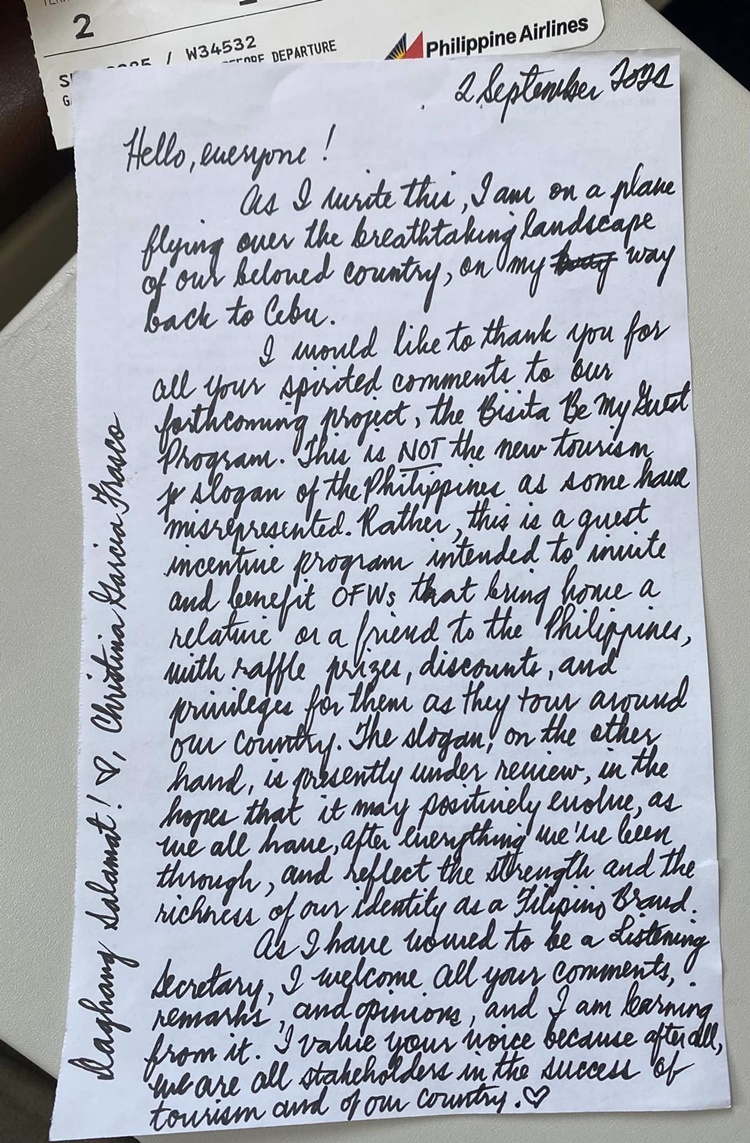 2
W34532
BEFORE DEPARTURE
Philippine Airlines
2 September 2022
Hello, everyone!
As I write this, I am on a plane
flying over the breathtaking landscape
of our beloved country, on my way
back to Cebu.
I would like to thank you for
all your spirited comments to our
forthcoming project, the Bisita Be My Guest
Program. This is NOT the new tourism
slogan of the Philippines as some have
misrepresented. Rather, this is a guest
incentive program intended to invite
and benefit OFWs that bring home a
relative or a friend to the Philippines,
with raffle prizes, discounts, and
privileges for them as they tour around
our country. The slogan, on the other
hand, is presently under review, in the
hopes that it may positively evolve, as
we all have, after everything we've been
through, and reflect the strength and the
richness of our identity as a Filipino Brand.
As I have vowed to be a Listening
Secretary, I welcome all your comments,
remarks, and opinions, and I am learning
from it. I value your voice because after all,
we are all stakeholders in the success of
tourism and of our country. ♡
Daghang Salamat! ♡, Christina Garcia Frasco